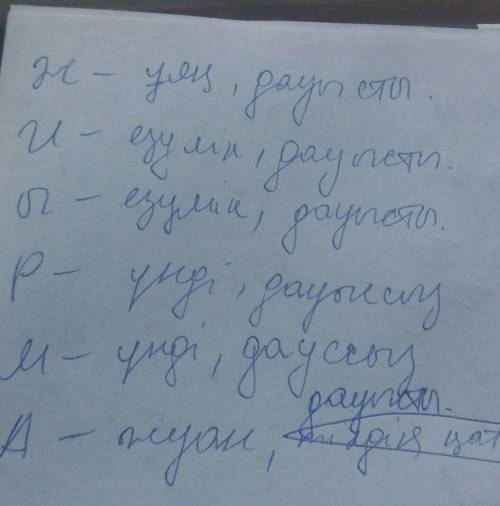 Ж – ұяң, дауысты.
И – езулік, дауысты.
Ы – езулік, дауысты.
Р – үнді, дауыссыз
М – үнді, дауссыз
дауысты.
А – жуан,